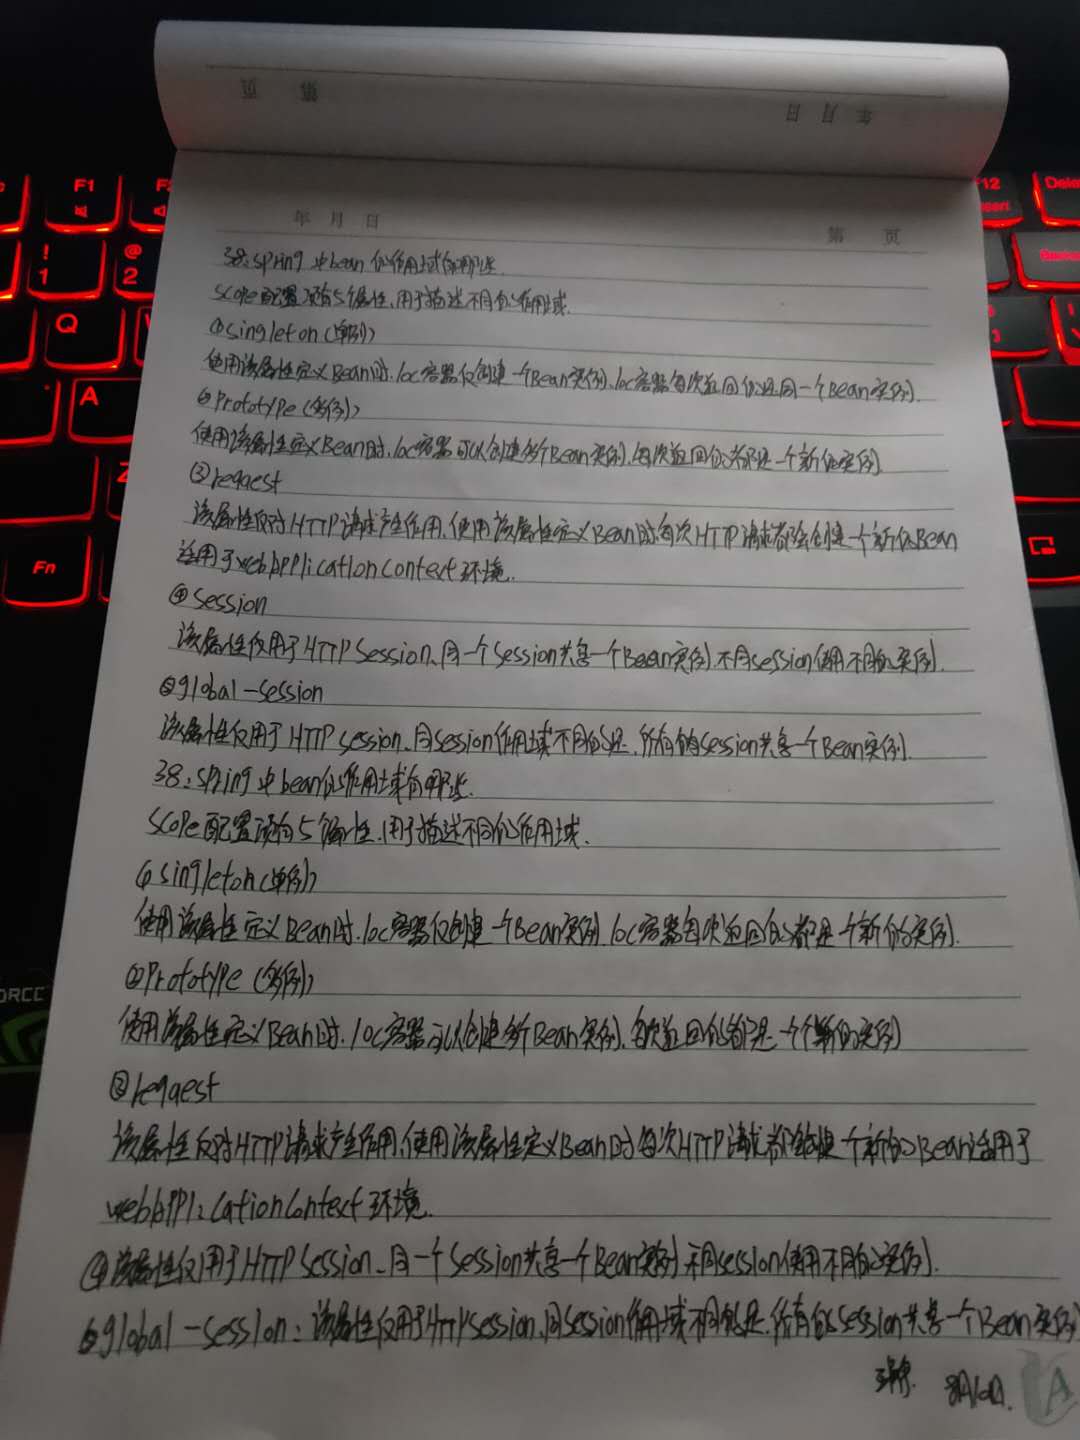 第 页
年 月 日
年 月 日
第 页
38:spring中bean的作用域有哪些.
Scope配置项有5个属性,用于描述不同的作用域.
①singleton(单例)
使用该属性定义Bean时,loc容器仅创建一个Bean实例,loc容器每次返回的是同一个Bean实例.
②Prototype(多例)
使用该属性定义Bean时,loc容器可以创建多个Bean实例,每次返回的都是一个新的实例.
③reqaest
该属性仅对HTTP请求产生作用,使用该属性定义Bean时,每次HTTP请求都会创建一个新的Bean
适用于webApplicationContext环境.
④session
该属性仅用于HTTP Session、同一个Session共享一个Bean实例,不同session使用不同的实例.
⑤global-session
该属性仅用于HTTP session、同session作用域不同的是,所有的session共享一个Bean实例.
38:spring中bean的作用域有哪些.
Scope配置项有5个属性,用于描述不同的作用域.
①singleton(单例)
使用该属性定义Bean时,loc容器仅创建一个Bean实例 loc容器每次返回的都是一个新的实例.
②Prototype(多例)
使用该属性定义Bean时,loc容器可以创建多个Bean实例,每次返回的都是一个新的实例
③reqaest
该属性仅对HTTP请求产生作用,使用该属性定义Bean时每次HTTP请求都会创建一个新的Bean适用于
webApplicationContext环境.
④该属性仅用于HTTP Session、同一个Session共享一个Bean实例,不同session使用不同的实例.
⑤global-session:该属性仅用于Http session,同session作用域不同的是,所有的session共享一个Bean实例
F1
F12
Delete
!
1
@
2
Q
A
Z
Fn